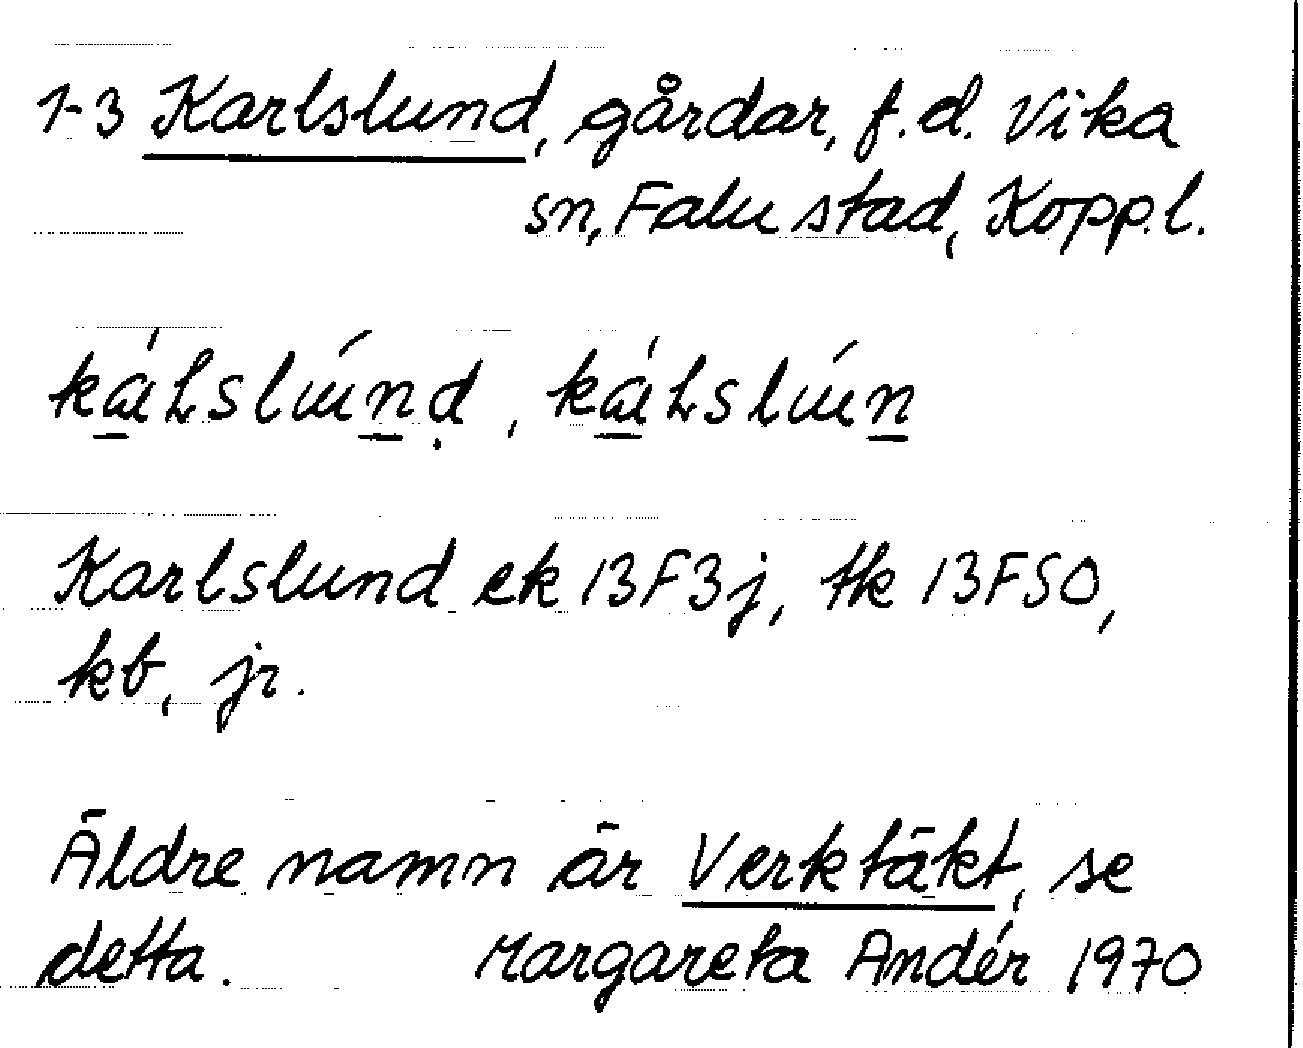 1-3 Karlslund, gårdar, f.d. Vika
sn, Falu stad, Koppl.
Karlslund ek 13F3j, tk 13FSO,
kb, jr.
Äldre namn är Verktäkt, se
detta. Margareta Andér 1970